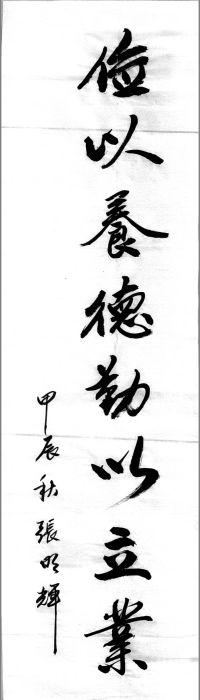 儉以養德勤以立業
甲辰秋張明輝